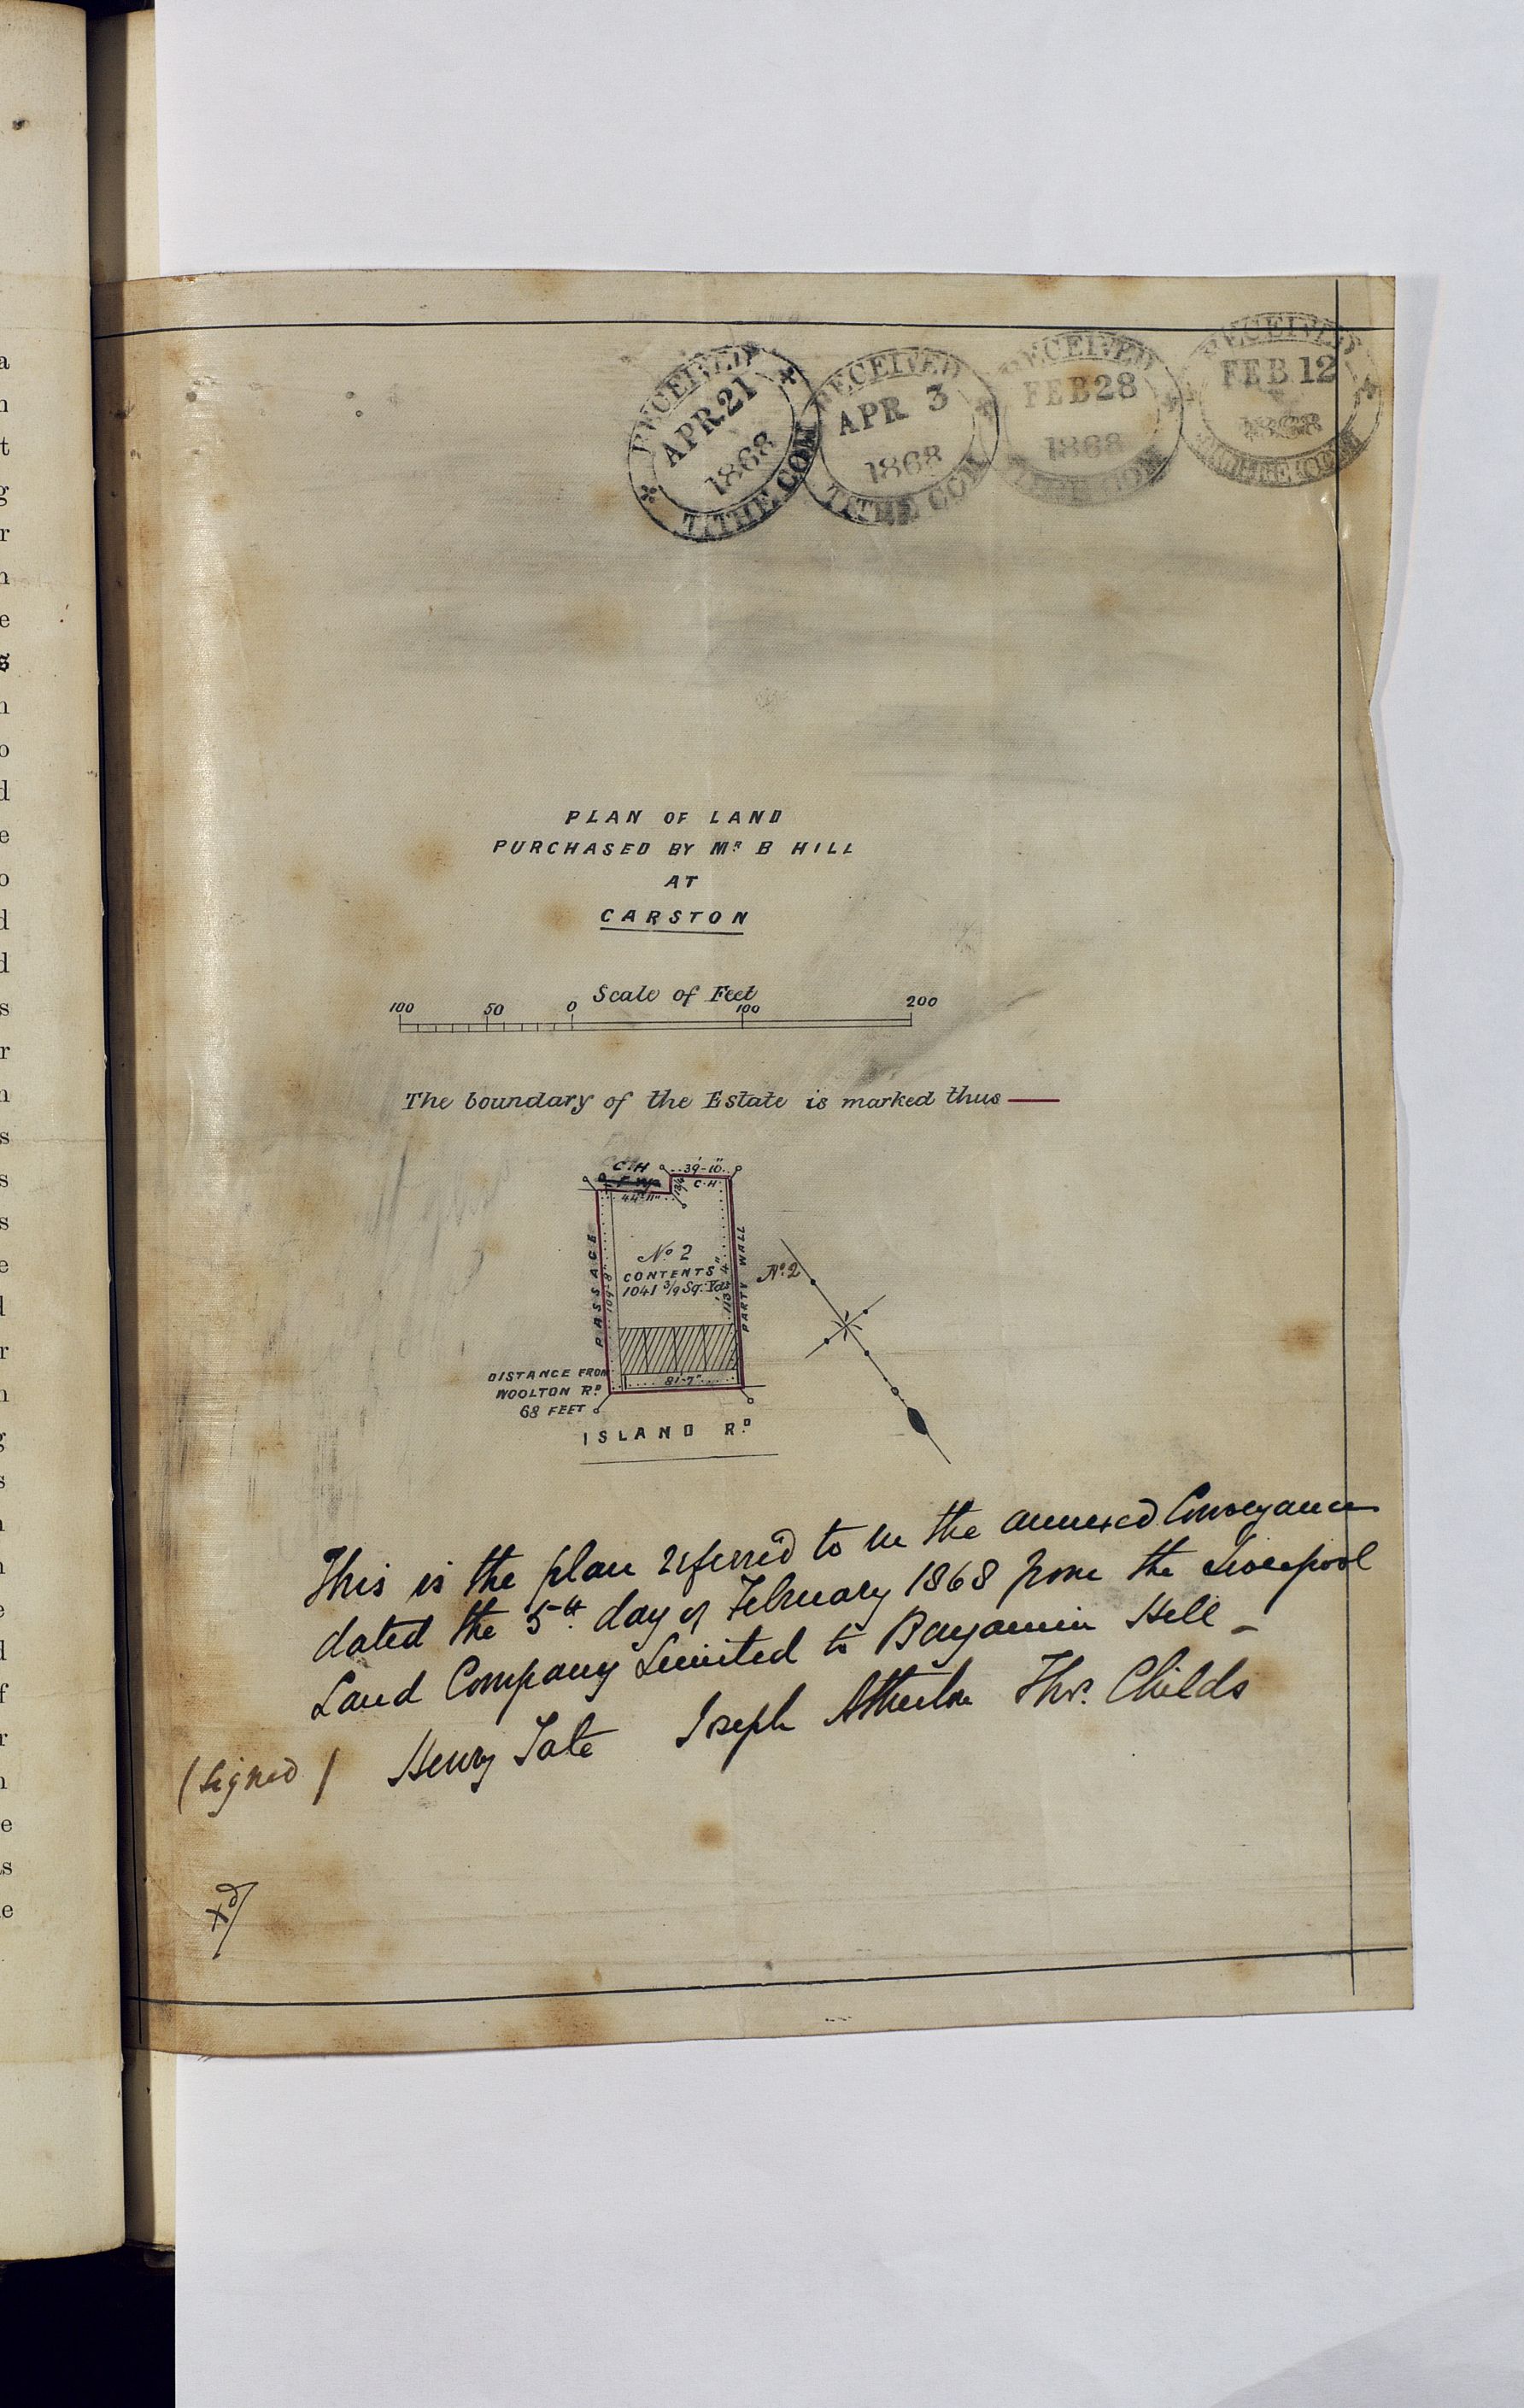 RECEIVED
APR. 21
1868
TITHE COM
RECEIVED
APR 3
1868
TITHE COM
RECEIVED
FEB 28
1868
TITHE COM
RECEIVED
FEB. 12
1868
TITHE COM
PLAN OF LAND
PURCHASED BY Mr B HILL
AT
GARSTON
Scale of Feet
100 50 0 100 200
The boundary of the Estate is marked thus
C.H
39-10"
C.H
44-11"
No 2
CONTENTS
1041 3/9 Sq: Yds
PASSAGE
109-8"
113-4"
PARTY WALL
No. 2
81-7"
DISTANCE FROM
WOOLTON RD
68 FEET
ISLAND RD
This is the plan referred to in the annexed Conveyance
dated the 5th day of February 1868 from the Liverpool
Land Company Limited to Benjamin Hill -
(signed) Henry Tate Joseph Atherton Thos. Childs
a
n
t
g
r
n
e
s
n
o
d
e
o
d
d
s
r
n
s
s
s
e
d
r
n
g
s
n
e
d
f
r
n
e
s
e